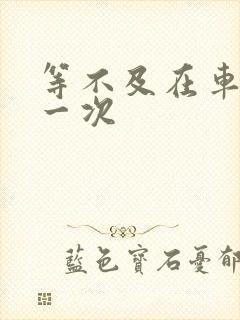 等不及在車
一次
藍色寶石憂郁